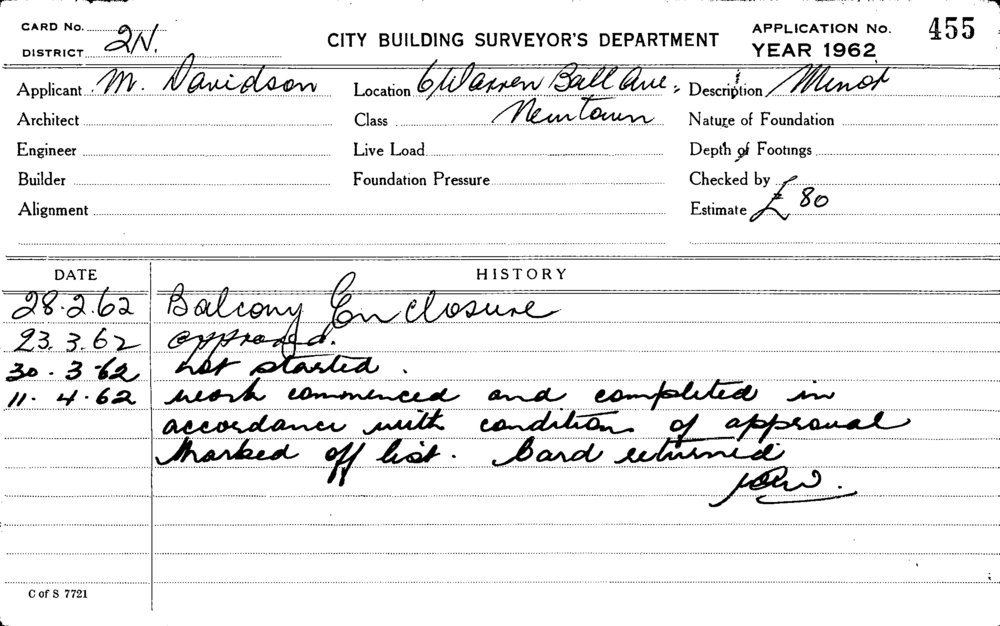 CARD No.
DISTRICT 2N.
CITY BUILDING SURVEYOR'S DEPARTMENT
APPLICATION No. 455
YEAR 1962
Applicant M. Davidson Location 6 Warren Ball Ave, Description Minor
Architect Class Newtown Nature of Foundation
Engineer Live Load Depth of Footings
Builder Foundation Pressure Checked by
Alignment Estimate £ 80
DATE HISTORY
28.2.62 Balcony Enclosure
23.3.62 approved.
30.3.62 not started.
11.4.62 work commenced and completed in
accordance with conditions of approval
Marked off list. Card returned
C of S 7721